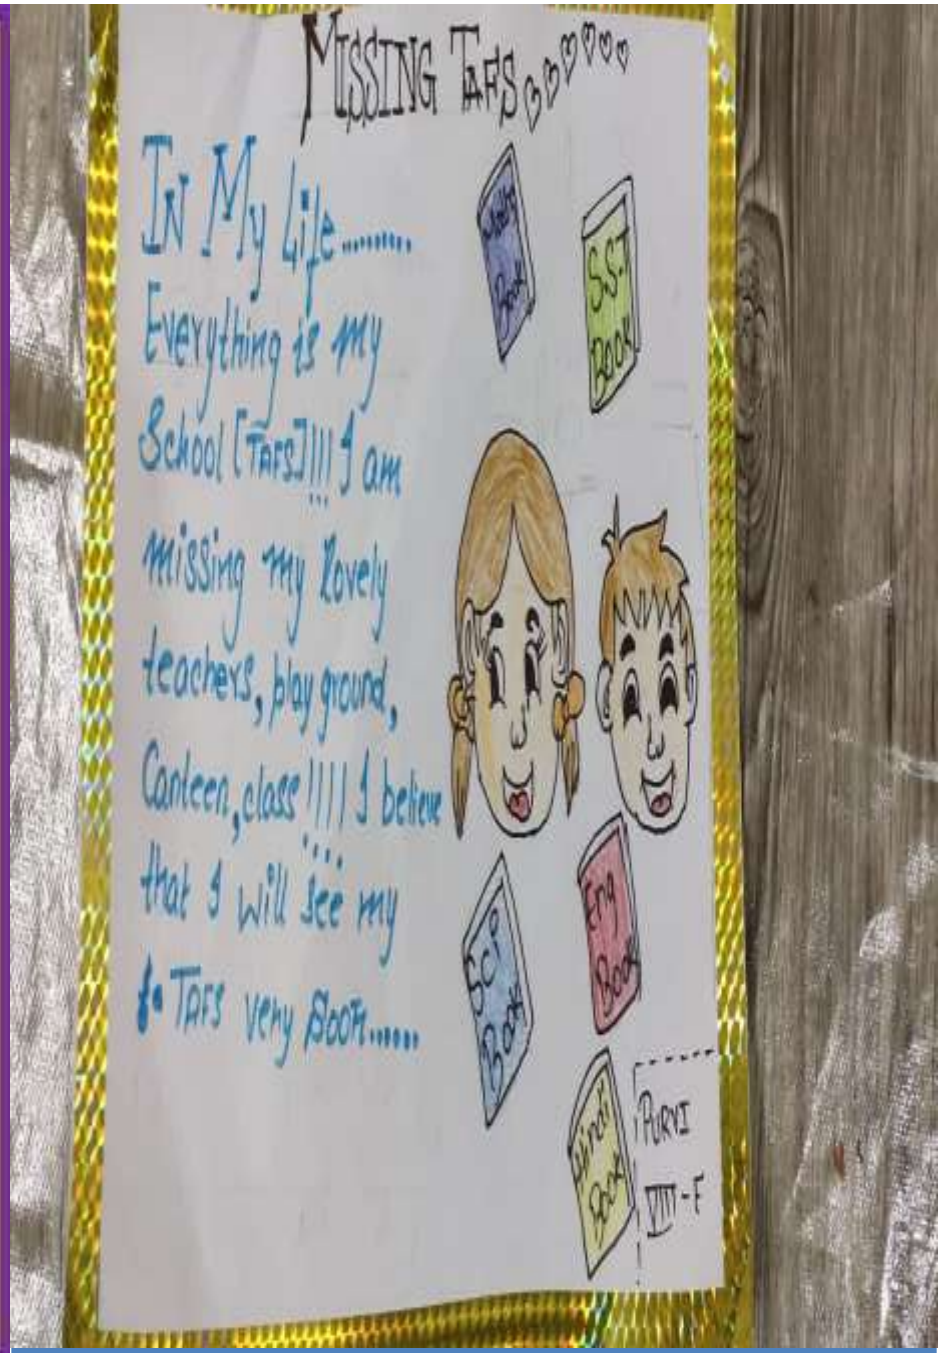 MISSING TAFS
IN My Life........
Everything is my
School [TAFS]!!! I am
missing my lovely
teachers, play ground,
Canteen, class !!!! I believe
that I will see my
TAFS very soon......
Maths
Book
S.S.T
BOOK
Sci
Book
Eng
Book
Hindi
Book
PURVI
VIII-F